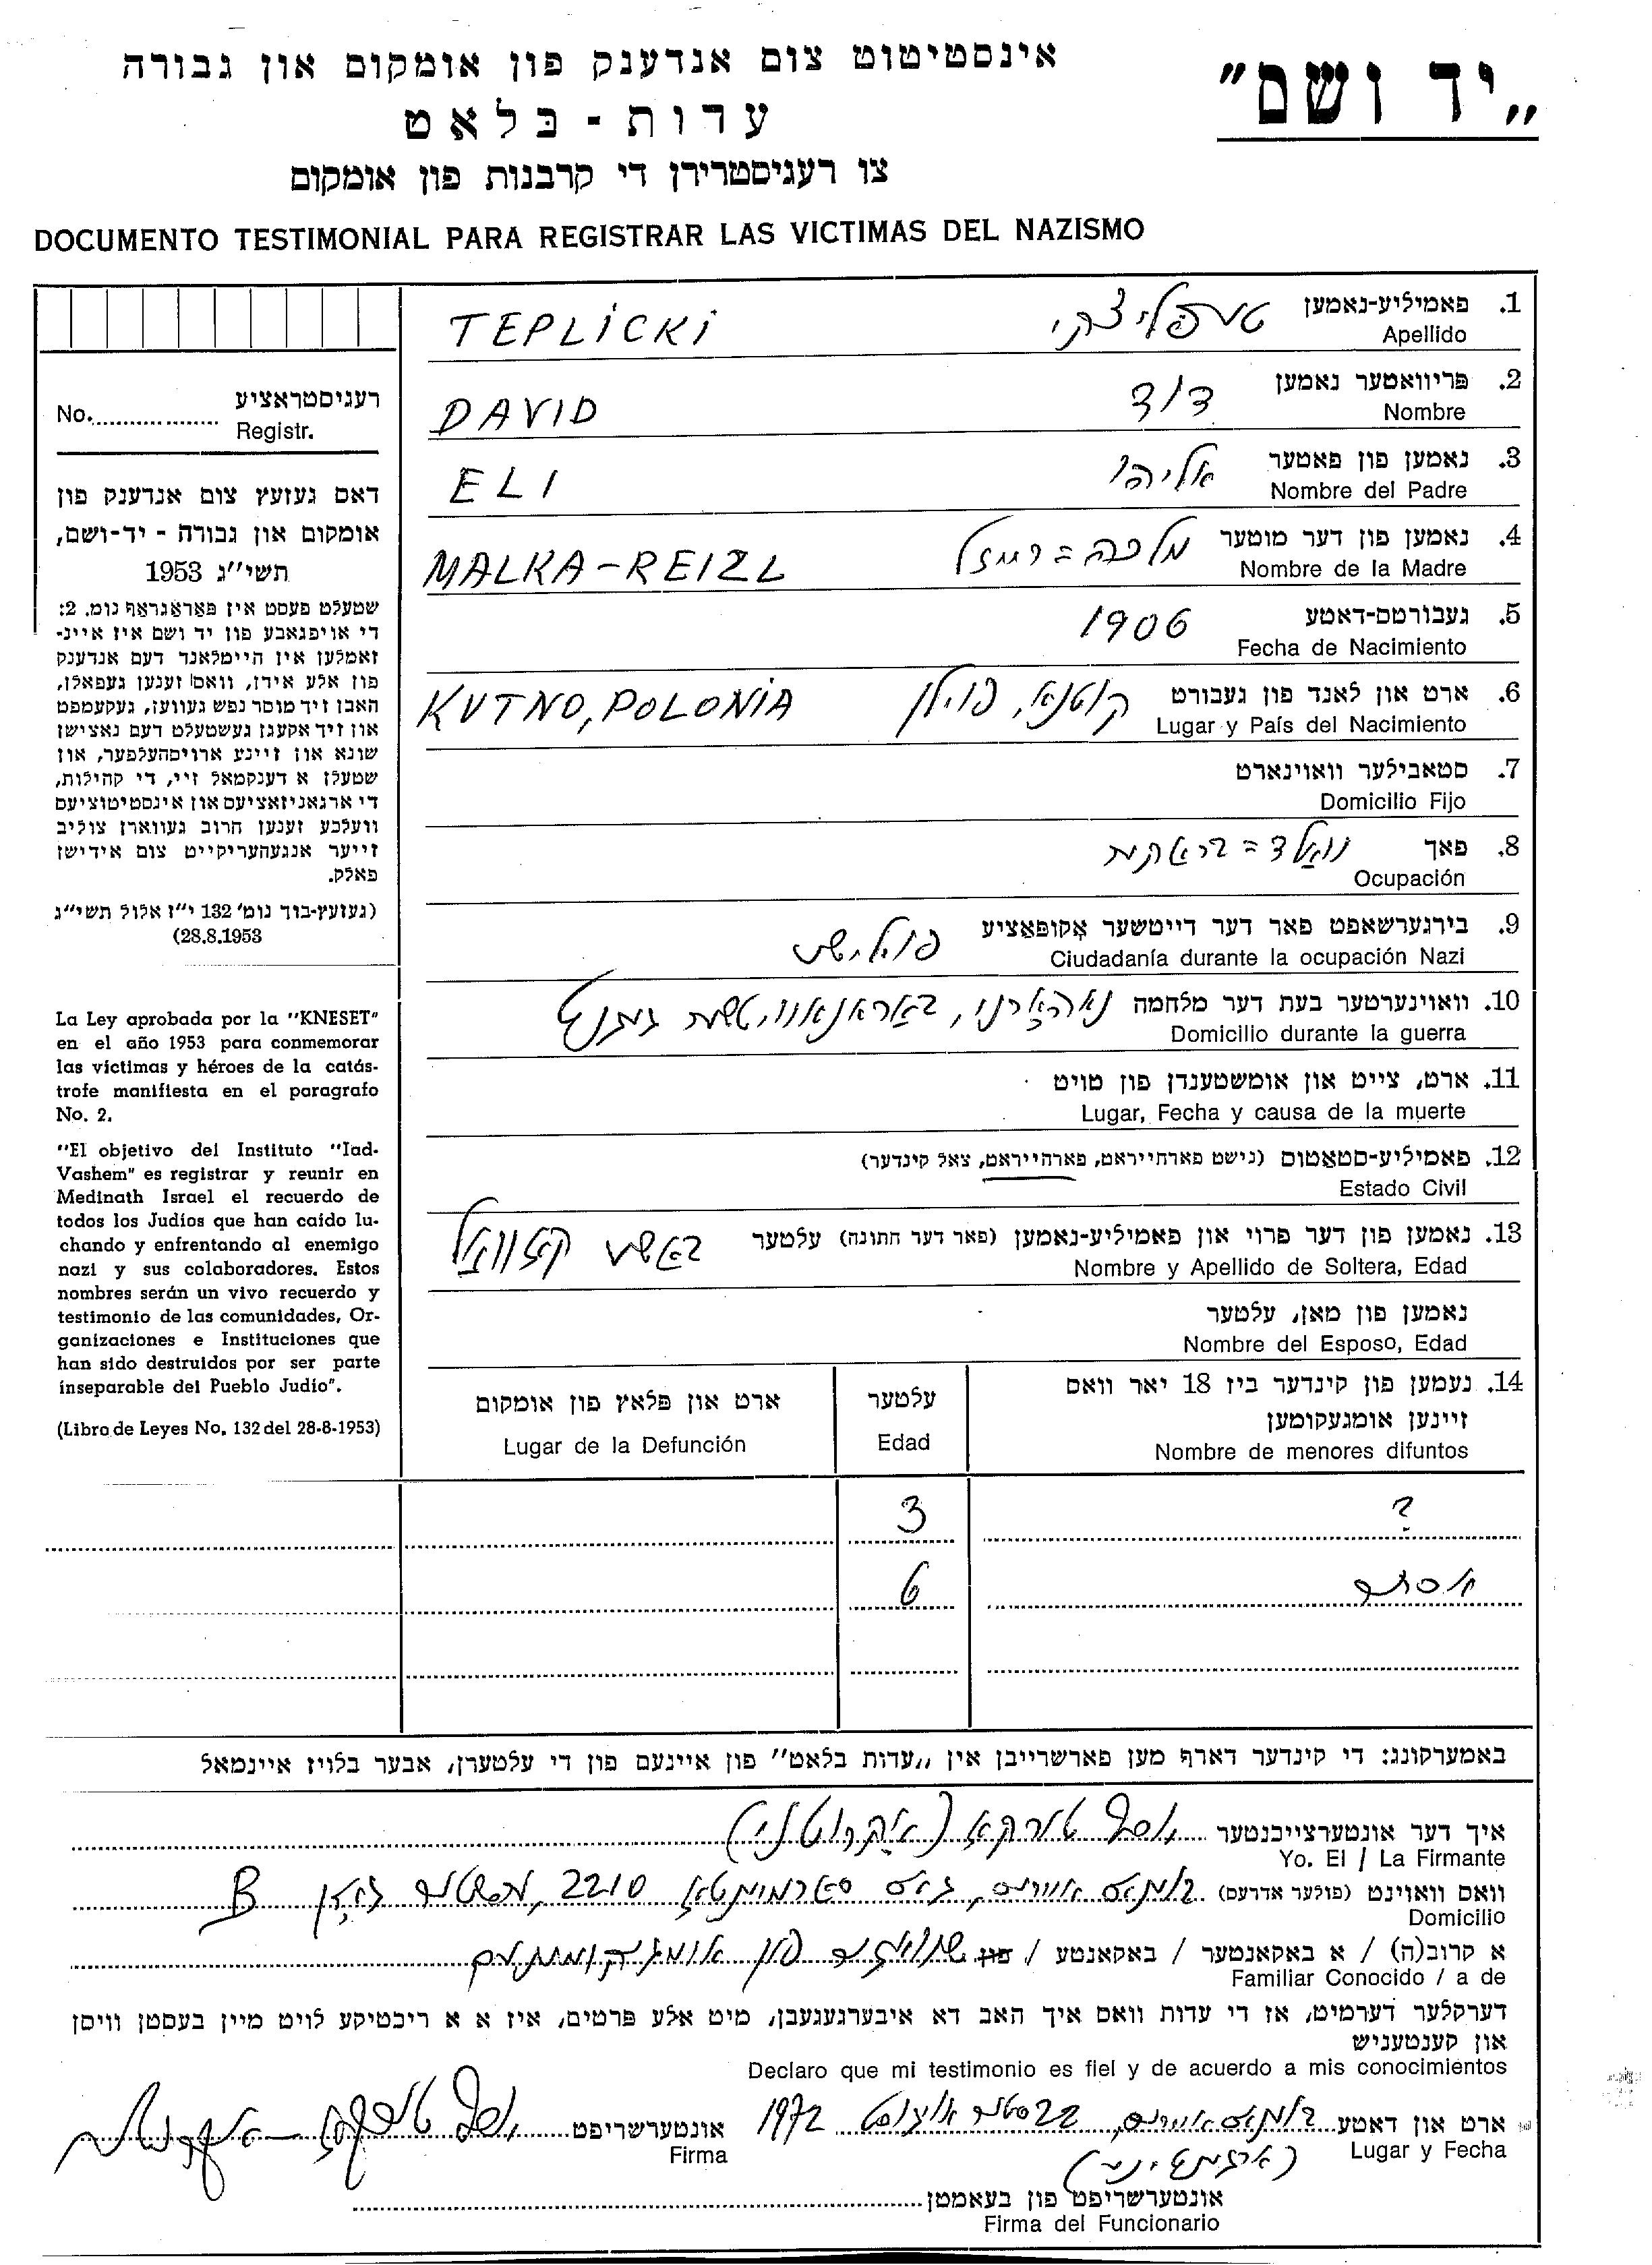 „יד ושם"
אינסטיטוט צום אנדענק פון אומקום און גבורה
עדות - בלאט
צו רעגיסטרירן די קרבנות פון אומקום
DOCUMENTO TESTIMONIAL PARA REGISTRAR LAS VICTIMAS DEL NAZISMO
1. פאמיליע-נאמען טעפליצקי TEPLICKI
Apellido
2. פריוואטער נאמען דוד DAVID
Nombre
3. נאמען פון פאטער אליהו ELI
Nombre del Padre
4. נאמען פון דער מוטער מלכה=רייזל MALKA-REIZL
Nombre de la Madre
5. געבורטס-דאטע 1906
Fecha de Nacimiento
6. ארט און לאנד פון געבורט קוטנא, פוילן KUTNO, POLONIA
Lugar y País del Nacimiento
7. סטאבילער וואוינארט
Domicilio Fijo
8. פאך
Ocupación
9. בירגערשאפט פאר דער דייטשער אקופאציע פויליש
Ciudadanía durante la ocupación Nazi
10. וואוינערטער בעת דער מלחמה
Domicilio durante la guerra
11. ארט, צייט און אומשטענדן פון טויט
Lugar, Fecha y causa de la muerte
12. פאמיליע-סטאטוס (נישט פארהייראט, פארהייראט, צאל קינדער)
Estado Civil
13. נאמען פון דער פרוי און פאמיליע-נאמען (פאר דער חתונה) עלטער באשע
Nombre y Apellido de Soltera, Edad
נאמען פון מאן, עלטער
Nombre del Esposo, Edad
14. נעמען פון קינדער ביז 18 יאר וואס
זיינען אומגעקומען
Nombre de menores difuntos
עלטער
Edad
ארט און פלאץ פון אומקום
Lugar de la Defunción
? 3
אסתר 6
No.
רעגיסטראציע
Registr.
דאס געזעץ צום אנדענק פון
אומקום און גבורה - יד-ושם,
תשי"ג 1953
שטעלט פעסט אין פאראגראף נומ. 2:
די אויפגאבע פון יד ושם איז איינ-
זאמלען אין היימלאנד דעם אנדענק
פון אלע אידן, וואס זענען געפאלן,
האבן זיך מוסר נפש געווען, געקעמפט
און זיך אקעגן געשטעלט דעם נאצישן
שונא און זיינע ארויסהעלפער, און
שטעלן א דענקמאל זיי, די קהילות,
די ארגאניזאציעס און אינסטיטוציעס
וועלכע זענען חרוב געווארן צוליב
זייער אנגעהעריקייט צום אידישן
פאלק.
(געזעץ-בוך נומ' 132 י"ז אלול תשי"ג
28.8.1953)
La Ley aprobada por la "KNESET"
en el año 1953 para conmemorar
las víctimas y héroes de la catás-
trofe manifiesta en el paragrafo
No. 2.
"El objetivo del Instituto "Iad-
Vashem" es registrar y reunir en
Medinath Israel el recuerdo de
todos los Judíos que han caído lu-
chando y enfrentando al enemigo
nazi y sus colaboradores. Estos
nombres serán un vivo recuerdo y
testimonio de las comunidades, Or-
ganizaciones e Instituciones que
han sido destruidos por ser parte
inseparable del Pueblo Judío".
(Libro de Leyes No. 132 del 28-8-1953)
באמערקונג: די קינדער דארף מען פארשרייבן אין „עדות בלאט" פון איינעם פון די עלטערן, אבער בלויז איינמאל
איך דער אונטערצייכנטער
Yo. El / La Firmante
וואס וואוינט (פולער אדרעס) בוענאס איירעס, גאס סארמיענטא 2210 B
Domicilio
א קרוב(ה) / א באקאנטער / באקאנטע / פון
Familiar Conocido / a de
דערקלער דערמיט, אז די עדות וואס איך האב דא איבערגעגעבן, מיט אלע פרטים, איז א א ריכטיקע לויט מיין בעסטן וויסן
און קענטעניש
Declaro que mi testimonio es fiel y de acuerdo a mis conocimientos
ארט און דאטע בוענאס איירעס, 22סטער אויגוסט 1972 אונטערשריפט
Lugar y Fecha (ארגענטינע) Firma
אונטערשריפט פון בעאמטן
Firma del Funcionario